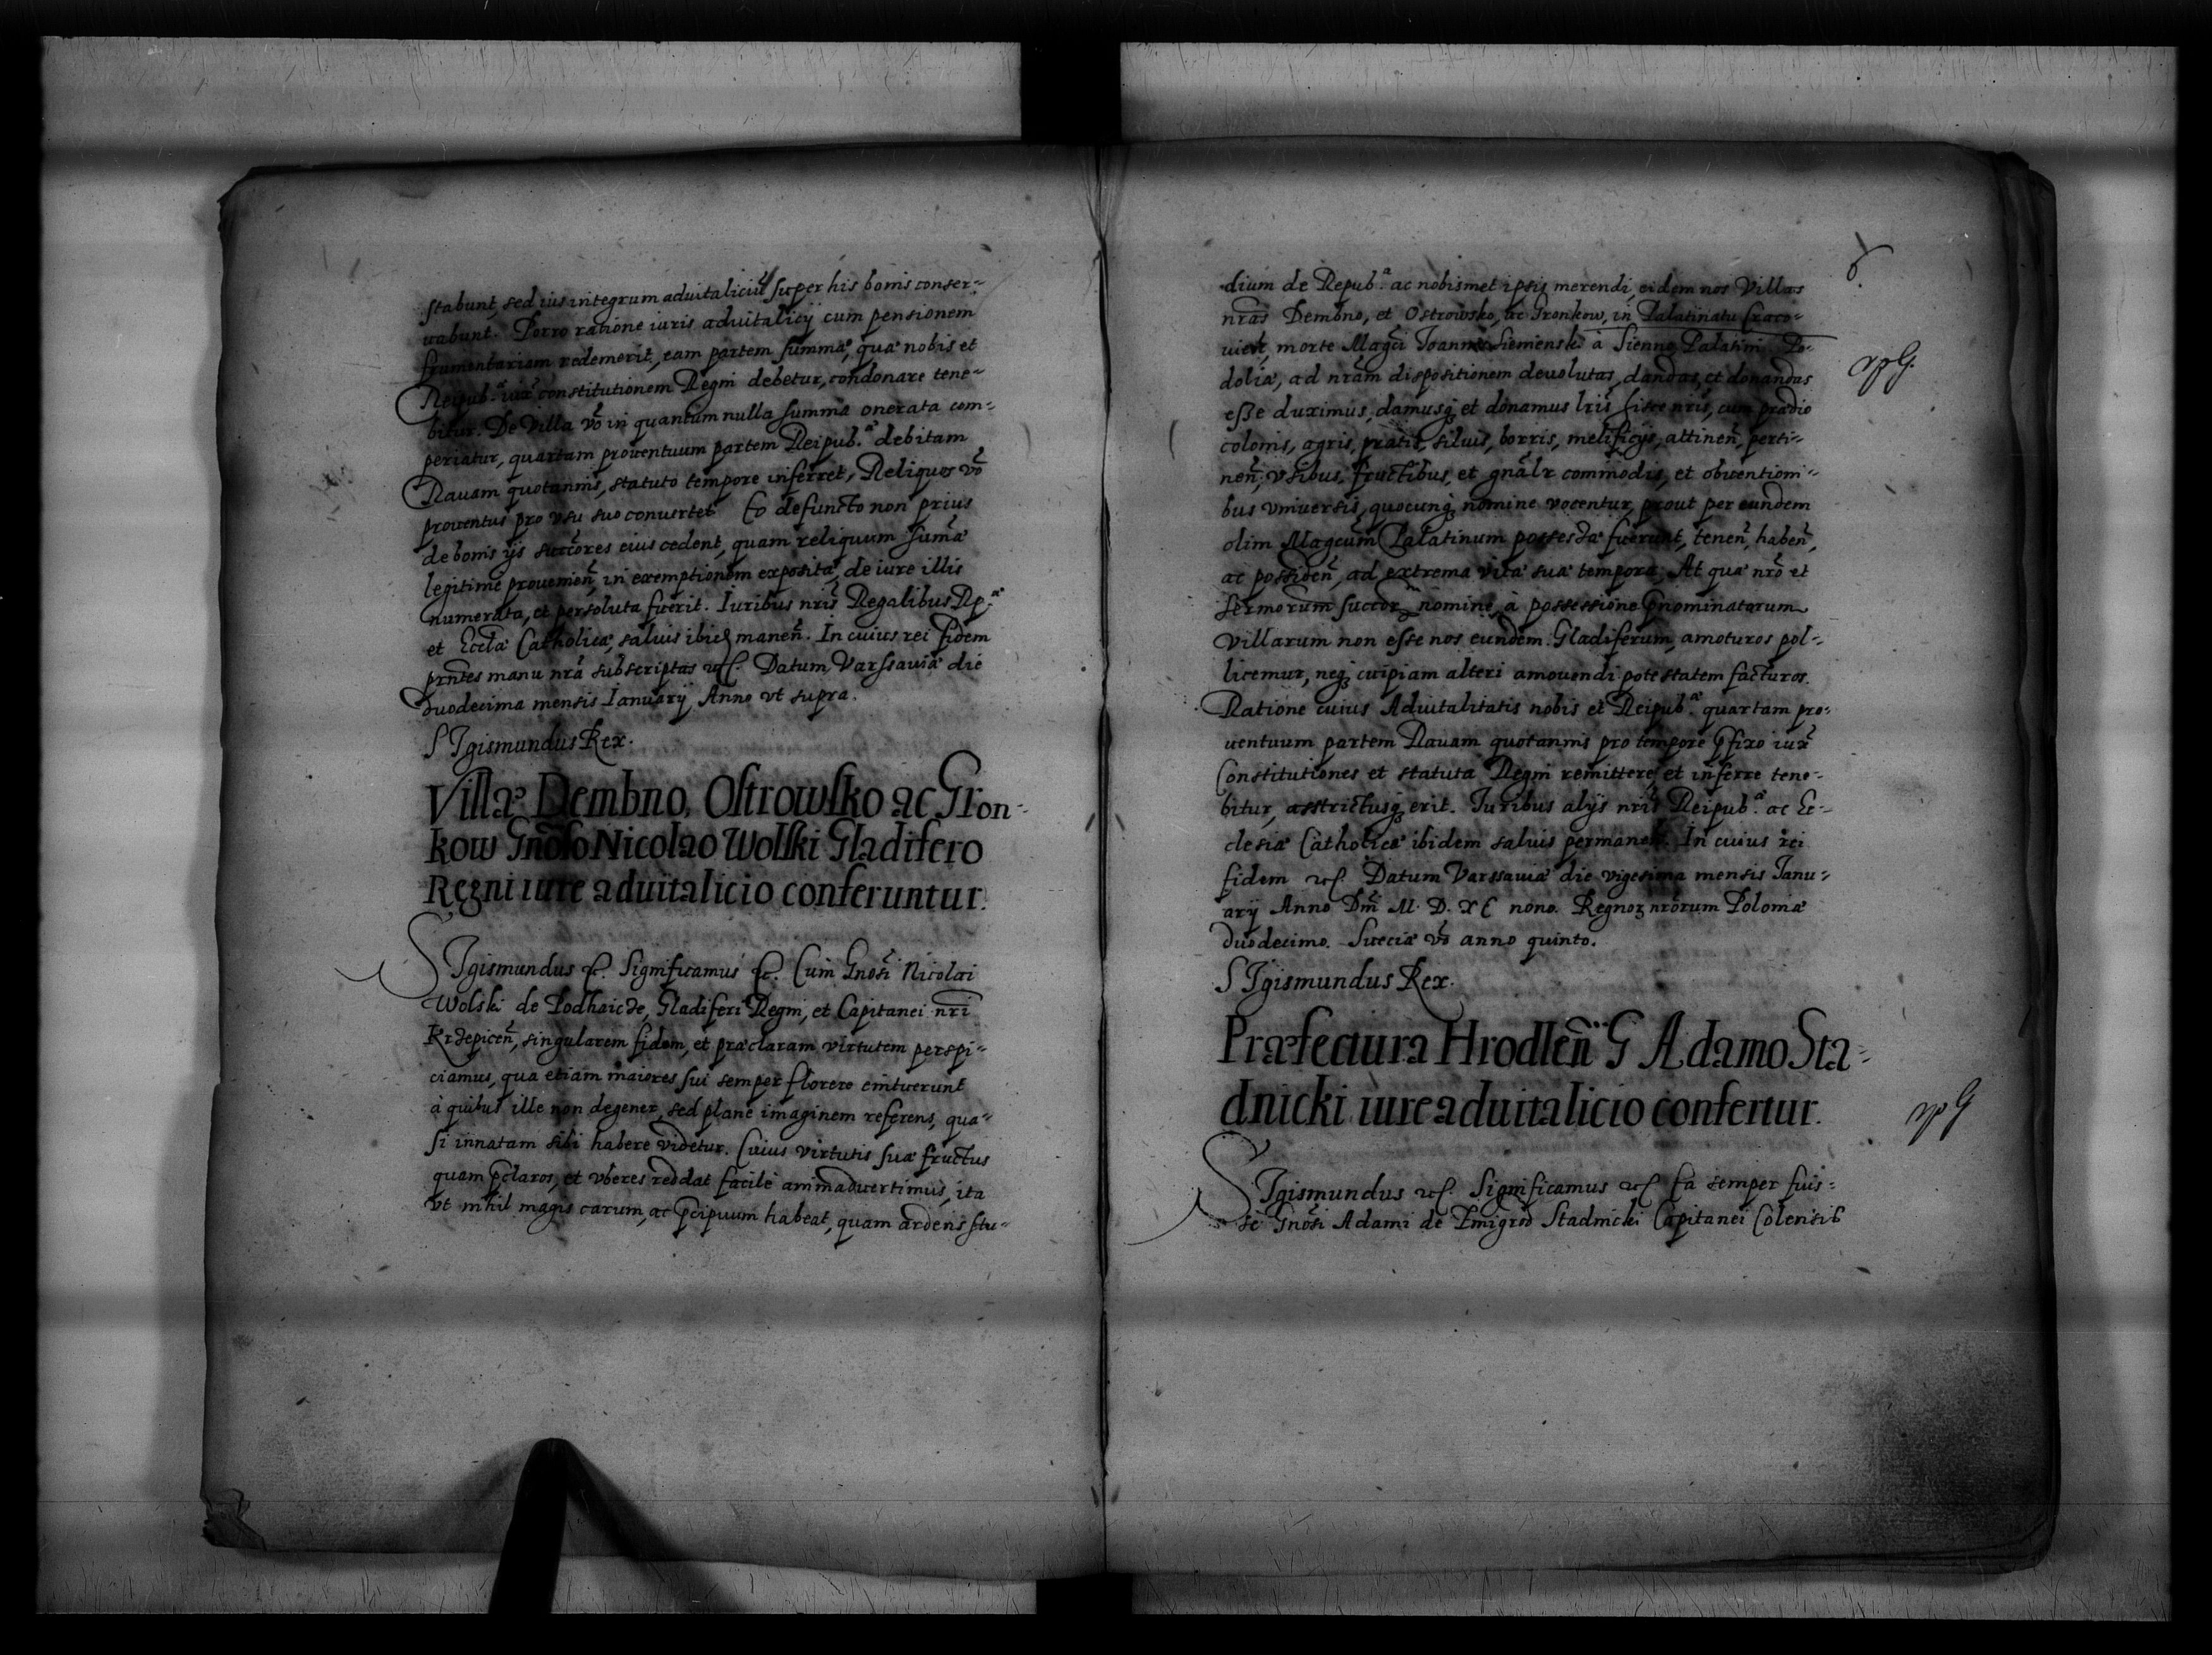 stabunt, sed ius integrum aduitaliciũ super his bonis conser-
uabunt. Porro ratione iuris aduitalicij cum pensionem
frumentariam redemerit, eam partem summæ, quæ nobis et
Reipub.æ iux̃ constitutionem Regni debetur, condonare tene-
bitur. De Villa võ in quantum nulla summa onerata com-
periatur, quartam prouentuum partem Reipub.æ debitam
Rauam quotannis, statuto tempore inferret, Reliquos võ
prouentus pro vsu suo conuertet Eo defuncto non prius
de bonis ijs succ̃ores eius cedent, quam reliquum sum̃æ
legitime prouenien̄, in exemptionem expositæ, de iure illis
numerata, et persoluta fuerit. Iuribus nr̃is Regalibus Rp.æ
et Eccl̃æ Catholicæ, saluis ibid manen̄. In cuius rei fidem
pr̃ntes manu nr̃a subscriptas etc. Datum Varssauiæ die
duodecima mensis Ianuarij Anno vt supra.
SIgismundus Rex.
Villæ Dembno, Ostrowsko ac Gron-
kow Gnõso Nicolao Wolski Gladifero
Regni iure aduitalicio conferuntur.
SIgismundus etc. Significamus etc. Cum Gnõsi Nicolai
Wolski de Podhaicze, Gladiferi Regni, et Capitanei nr̃i
Krzepicen̄, singularem fidem, et præclaram virtutem perspi-
ciamus, qua etiam maiores sui semper florere enituerunt
à quibus ille non degener, sed plane imaginem referens, qua-
si innatam sibi habere videtur. Cuius virtutis suæ fructus
quam p̃claros, et vberes reddat facilè animaduertimus, ita
vt nihil magis carum, ac p̃cipuum habeat, quam ardens stu-
8.
dium de Repub.æ ac nobismet ipsis merendi, eidem nos Villas
nr̃as Dembno, et Ostrowsko, ac Gronkow, in Palatinatu Craco-
uien̄, morte Magc̃i Joannis Siemienski à Sienno Palatini Po-
doliæ, ad nr̃am dispositionem deuolutas, dandas, et donandas
eße duximus, damusq; et donamus lr̃is hisce nr̃is, cum prædio
colonis, agris, pratis, siluis, borris, melificijs, attinen̄, perti-
nen̄, vsibus, fructibus, et gnãlr commodis, et obuentioni-
bus vniuersis, quocunq; nomine vocentur, prout per eundem
olim Magcũm Palatinum possessæ fuerunt, tenen̄, haben̄,
ac possiden̄, ad extrema vitæ suæ tempora; At quæ nr̃o et
Sermorum succor̃ nomine, à possessione p̃nominatarum
Villarum non esse nos eundem Gladiferum, amoturos pol-
licemur, neq; cuipiam alteri amouendi potestatem facturos.
Ratione cuius Aduitalitatis nobis et Reipub.æ quartam pro-
uentuum partem Rauam quotannis pro tempore p̃fixo iux̃
Constitutiones et statuta Regni remittere, et inferre tene-
bitur, astrictusq; erit. Iuribus alijs nr̃is Reipub.æ ac Ec-
clesiæ Catholicæ ibidem saluis permanen̄. In cuius rei
fidem etc. Datum Varssauiæ die vigesima mensis Janu-
arij Anno Dm̃ M. D. XC nono. Regnoꝝ nr̃orum Poloniæ
duodecimo. Sueciæ võ anno quinto.
SIgismundus Rex.
Præfectura Hrodlen̄ G Adamo Sta-
dnicki iure aduitalicio confertur.
SIgismundus etc. Significamus etc Ea semper fuis-
se Gnõsi Adami de Zmigrod Stadnicki Capitanei Colensis